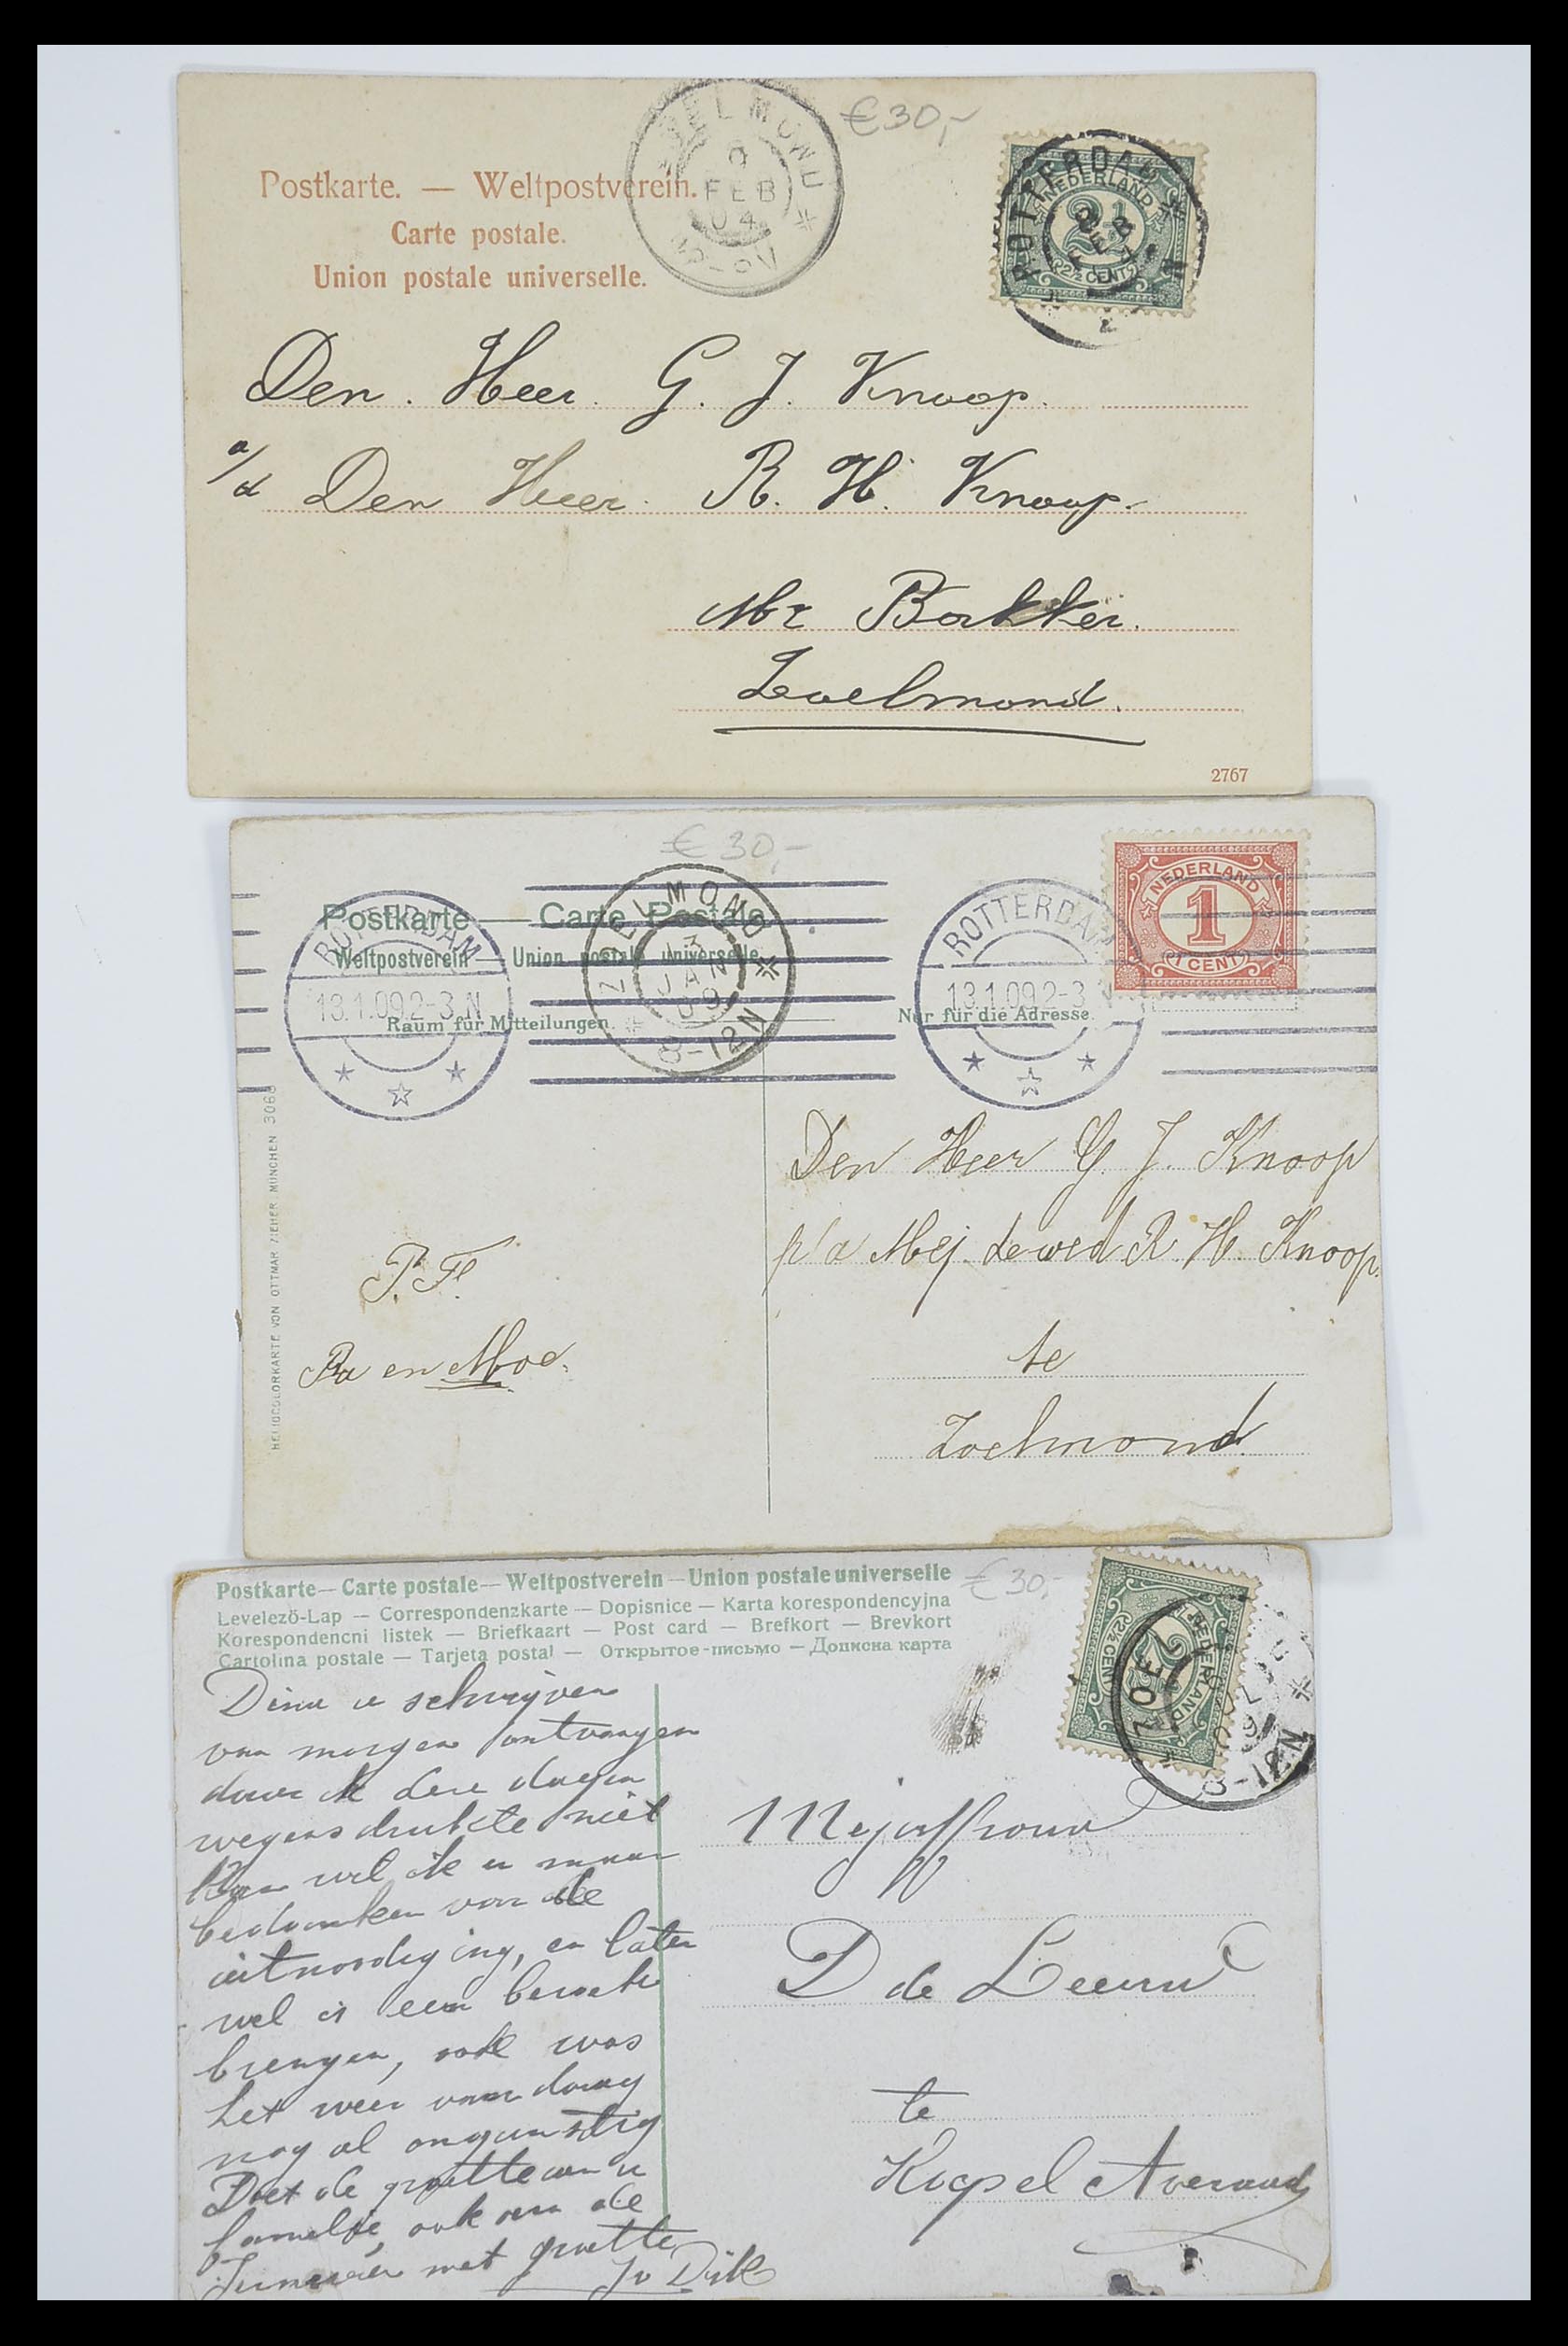 €30,-
Postkarte. — Weltpostverein.
Carte postale.
Union postale universelle.
ELMOND
FEB
04
ROTTERDAM
NEDERLAND
2½
(2½ CENT)
Den Heer G. J. Knoop.
a/d Den Heer R. H. Knoop.
Mr Bakker.
Zoelmond.
2767
€30,-
Postkarte — Carte Postale
Weltpostverein — Union postale universelle
ROTTERDAM
13.1.09 2-3 N
ZOELMOND
13
JAN
09
8-12N
ROTTERDAM
13.1.09 2-3 N
NEDERLAND
1
(1 CENT)
Raum für Mitteilungen.
Nur für die Adresse.
HELIOCOLORKARTE VON OTTMAR ZIEHER MÜNCHEN 306
Den Heer G. J. Knoop
p/a Mej. de wed R. H. Knoop.
te
Zoelmond.
P. F.
Pa en Moe.
Postkarte — Carte postale — Weltpostverein — Union postale universelle
€30,-
Levelező-Lap — Correspondenzkarte — Dopisnice — Karta korespondencyjna
Korespondencni listek — Briefkaart — Post card — Brefkort — Brevkort
Cartolina postale — Tarjeta postal — Открытое-письмо — Дописна карта
NEDERLAND
2½
(2½ CENT)
ZOEL
8-12N
u schrijven
van morgen ontvangen
daar ik dere dagen
wegens drukte niet
kan wil ik u maar
bedanken voor de
uitnoodiging, en later
wel is een bezoek
brengen, ook was
het weer van daag
nog al ongunstig
Doet de groette aan u
familie, ook aan de
met groette
Jv Dijk
Mejuffrouw
D de Leeuw
te
Kapel Avezaad